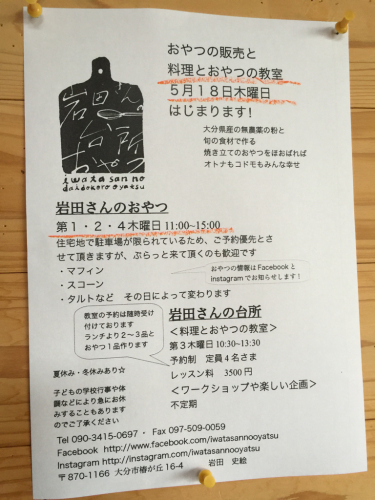 岩田さんの
台所
おやつ
iwatasanno
daidokoro oyatsu
おやつの販売と
料理とおやつの教室
5月18日木曜日
はじまります!
大分県産の無農薬の粉と
旬の食材で作る
焼き立てのおやつをほおばれば
オトナもコドモもみんな幸せ
岩田さんのおやつ
第1・2・4木曜日 11:00~15:00
住宅地で駐車場が限られているため、ご予約優先とさ
せて頂きますが、ぷらっと来て頂くのも歓迎です
・マフィン
・スコーン
・タルトなど その日によって変わります
おやつの情報はFacebookと
instagramでお知らせします!
教室の予約は随時受け
付けております
ランチより2~3品と
おやつ1品作ります
岩田さんの台所
<料理とおやつの教室>
第3木曜日 10:30~13:30
予約制 定員4名さま
レッスン料 3500円
<ワークショップや楽しい企画>
不定期
夏休み・冬休みあり☆
子どもの学校行事や体
調などにより急にお休
みすることもあります
のでご了承ください
Tel 090-3415-0697 ・ Fax 097-509-0059
Facebook http://www.facebook.com/iwatasannooyatsu
Instagram http://instagram.com/iwatasannooyatsu
〒870-1166 大分市椿が丘16-4 岩田 史絵